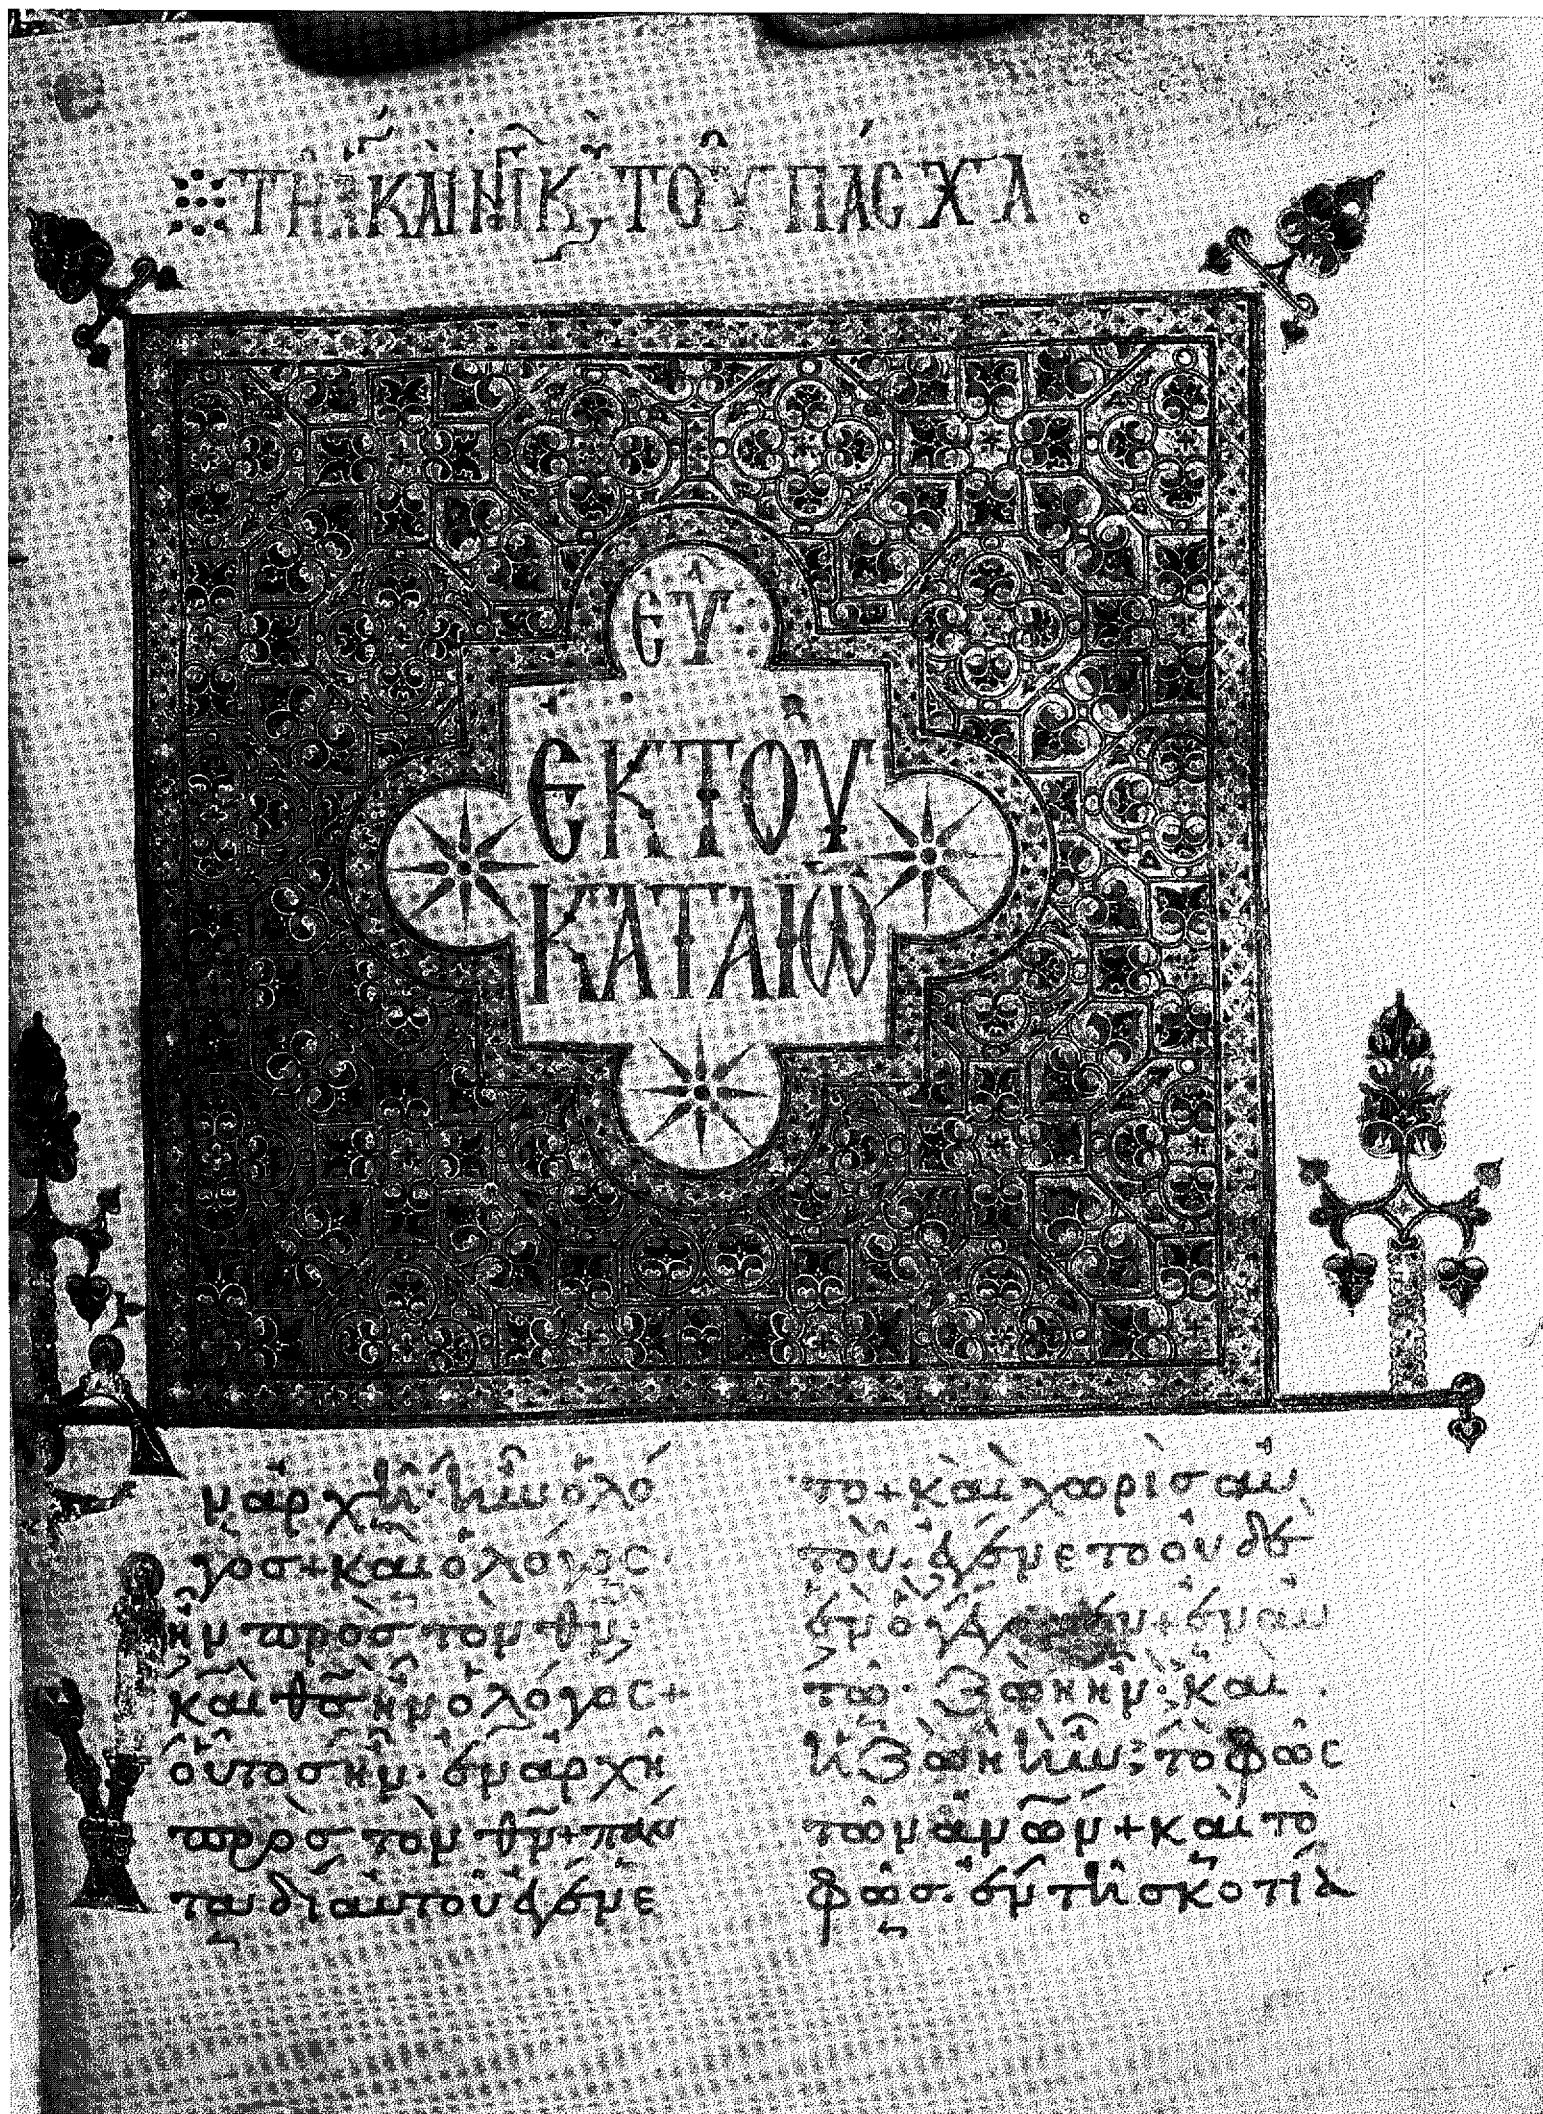 ΤΗ ΚΑΙ ΜΓ Κ, ΤΟΥ ΠΑΣΧΑ
ΕΥ
ΕΚ ΤΟΥ
ΚΑΤΑ ΙΩ
ν ἀρχῇ ἦν ὁ λό
γοσ + καὶ ὁ λόγοσ ·
ἦν πρὸσ τὸν θν̅ ·
καὶ θσ̅ ἦν ὁ λόγοσ +
οὗτοσ ἦν · ἐν ἀρχῆ
πρὸσ τὸν θν̅ + πάν
τα δι αυτοῦ ἐγένε
το + καὶ χωρὶσ αὐ
τοῦ · ἐγένετο οὐδὲ
ἓν ὃ γέγονεν + ἐν αυ
τῶ · ζωὴ ἦν · καὶ
ἡ ζωὴ ἦν · τὸ φῶσ
τῶν ἀν̅ω̅ν + καὶ τὸ
φῶσ · ἐν τῆ σκοτία